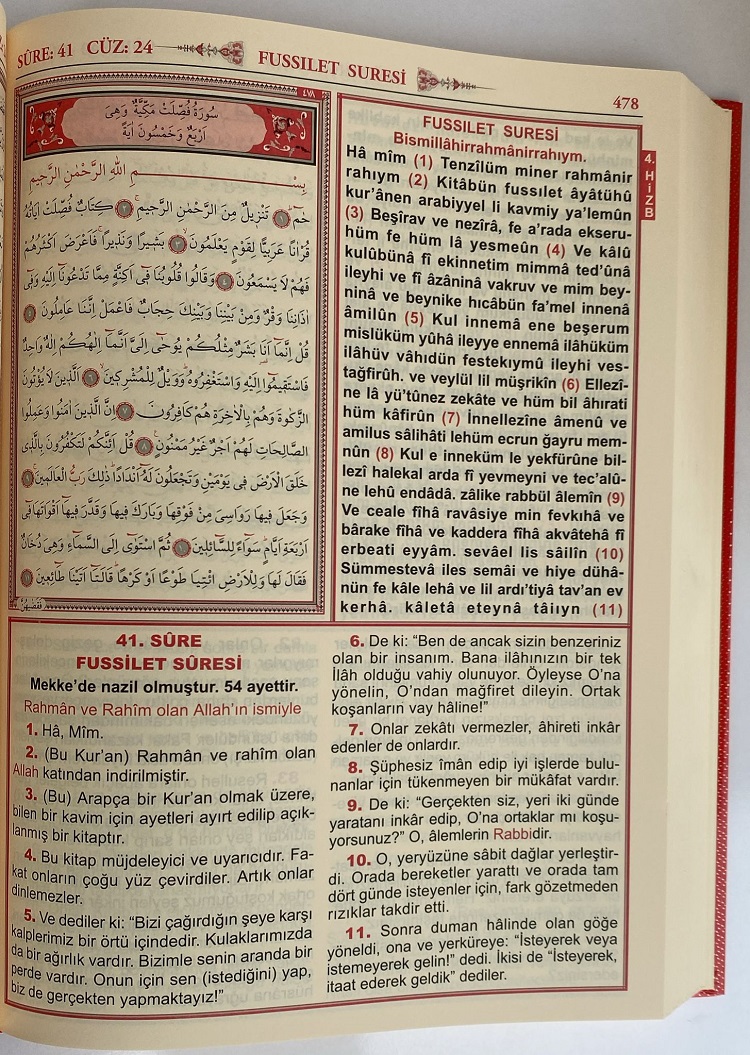 SÛRE: 41 CÜZ: 24
FUSSILET SURESİ
478
٤٧٨
سُورَةُ فُصِّلَتْ مَكِّيَّةٌ وَهِىَ
اَرْبَعٌ وَخَمْسُونَ اٰيَةً
بِسْــــــمِ اللّٰهِ الرَّحْمٰنِ الرَّحِيمِ
حٰمٓ ﴿١﴾ تَنْزِيلٌ مِنَ الرَّحْمٰنِ الرَّحِيمِ ﴿٢﴾ كِتَابٌ فُصِّلَتْ اٰيَاتُهُ
قُرْاٰنًا عَرَبِيًّا لِقَوْمٍ يَعْلَمُونَ ﴿٣﴾ بَشِيرًا وَنَذِيرًا فَاَعْرَضَ اَكْثَرُهُمْ
فَهُمْ لَا يَسْمَعُونَ ﴿٤﴾ وَقَالُوا قُلُوبُنَا فِى اَكِنَّةٍ مِمَّا تَدْعُونَا اِلَيْهِ وَفِى
اٰذَانِنَا وَقْرٌ وَمِنْ بَيْنِنَا وَبَيْنِكَ حِجَابٌ فَاعْمَلْ اِنَّنَا عَامِلُونَ ﴿٥﴾
قُلْ اِنَّمَا اَنَا بَشَرٌ مِثْلُكُمْ يُوحٰى اِلَىَّ اَنَّمَا اِلٰهُكُمْ اِلٰهٌ وَاحِدٌ
فَاسْتَقِيمُوا اِلَيْهِ وَاسْتَغْفِرُوهُ وَوَيْلٌ لِلْمُشْرِكِينَ ﴿٦﴾ اَلَّذِينَ لَا يُؤْتُونَ
الزَّكٰوةَ وَهُمْ بِالْاٰخِرَةِ هُمْ كَافِرُونَ ﴿٧﴾ اِنَّ الَّذِينَ اٰمَنُوا وَعَمِلُوا
الصَّالِحَاتِ لَهُمْ اَجْرٌ غَيْرُ مَمْنُونٍ ﴿٨﴾ قُلْ اَئِنَّكُمْ لَتَكْفُرُونَ بِالَّذِى
خَلَقَ الْاَرْضَ فِى يَوْمَيْنِ وَتَجْعَلُونَ لَهُ اَنْدَادًا ذٰلِكَ رَبُّ الْعَالَمِينَ ﴿٩﴾
وَجَعَلَ فِيهَا رَوَاسِىَ مِنْ فَوْقِهَا وَبَارَكَ فِيهَا وَقَدَّرَ فِيهَا اَقْوَاتَهَا فِى
اَرْبَعَةِ اَيَّامٍ سَوَاءً لِلسَّائِلِينَ ﴿١٠﴾ ثُمَّ اسْتَوٰى اِلَى السَّمَاءِ وَهِىَ دُخَانٌ
فَقَالَ لَهَا وَلِلْاَرْضِ ائْتِيَا طَوْعًا اَوْ كَرْهًا قَالَتَا اَتَيْنَا طَائِعِينَ ﴿١١﴾
فَقَضٰيهُنَّ
FUSSILET SURESİ
Bismillâhirrahmânirrahıym.
Hâ mîm (1) Tenzîlüm miner rahmânir
rahıym (2) Kitâbün fussılet âyâtühû
kur'ânen arabiyyel li kavmiy ya'lemûn
(3) Beşîrav ve nezîrâ, fe a'rada ekseru-
hüm fe hüm lâ yesmeûn (4) Ve kâlû
kulûbünâ fî ekinnetim mimmâ ted'ûnâ
ileyhi ve fî âzâninâ vakruv ve mim bey-
ninâ ve beynike hıcâbün fa'mel innenâ
âmilûn (5) Kul innemâ ene beşerum
mislüküm yûhâ ileyye ennemâ ilâhüküm
ilâhüv vâhıdün festekıymû ileyhi ves-
tağfirûh. ve veylül lil müşrikîn (6) Ellezî-
ne lâ yü'tûnez zekâte ve hüm bil âhırati
hüm kâfirûn (7) İnnellezîne âmenû ve
amilus sâlihâti lehüm ecrun ğayru mem-
nûn (8) Kul e inneküm le yekfürûne bil-
lezî halekal arda fî yevmeyni ve tec'alû-
ne lehû endâdâ. zâlike rabbül âlemîn (9)
Ve ceale fîhâ ravâsiye min fevkıhâ ve
bârake fîhâ ve kaddera fîhâ akvâtehâ fî
erbeati eyyâm. sevâel lis sâilîn (10)
Sümmestevâ iles semâi ve hiye dühâ-
nün fe kâle lehâ ve lil ardı'tiyâ tav'an ev
kerhâ. kâletâ eteynâ tâiıyn (11)
4.
H
İ
Z
B
41. SÛRE
FUSSİLET SÛRESİ
Mekke'de nazil olmuştur. 54 ayettir.
Rahmân ve Rahîm olan Allah'ın ismiyle
1. Hâ, Mîm.
2. (Bu Kur'an) Rahmân ve rahîm olan
Allah katından indirilmiştir.
3. (Bu) Arapça bir Kur'an olmak üzere,
bilen bir kavim için ayetleri ayırt edilip açık-
lanmış bir kitaptır.
4. Bu kitap müjdeleyici ve uyarıcıdır. Fa-
kat onların çoğu yüz çevirdiler. Artık onlar
dinlemezler.
5. Ve dediler ki: "Bizi çağırdığın şeye karşı
kalplerimiz bir örtü içindedir. Kulaklarımızda
da bir ağırlık vardır. Bizimle senin aranda bir
perde vardır. Onun için sen (istediğini) yap,
biz de gerçekten yapmaktayız!"
6. De ki: "Ben de ancak sizin benzeriniz
olan bir insanım. Bana ilâhınızın bir tek
İlâh olduğu vahiy olunuyor. Öyleyse O'na
yönelin, O'ndan mağfiret dileyin. Ortak
koşanların vay hâline!"
7. Onlar zekâtı vermezler, âhireti inkâr
edenler de onlardır.
8. Şüphesiz îmân edip iyi işlerde bulu-
nanlar için tükenmeyen bir mükâfat vardır.
9. De ki: "Gerçekten siz, yeri iki günde
yaratanı inkâr edip, O'na ortaklar mı koşu-
yorsunuz?" O, âlemlerin Rabbidir.
10. O, yeryüzüne sâbit dağlar yerleştir-
di. Orada bereketler yarattı ve orada tam
dört günde isteyenler için, fark gözetmeden
rızıklar takdir etti.
11. Sonra duman hâlinde olan göğe
yöneldi, ona ve yerküreye: "İsteyerek veya
istemeyerek gelin!" dedi. İkisi de "İsteyerek,
itaat ederek geldik" dediler.